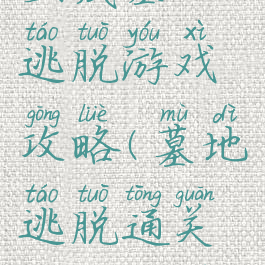 táo tuō yóu xì
逃脱游戏
gōng lüè mù dì
攻略(墓地
táo tuō tōng guān
逃脱通关